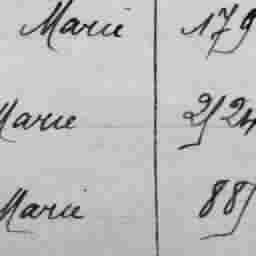 Marie 179
Marie 2524
Marie 885